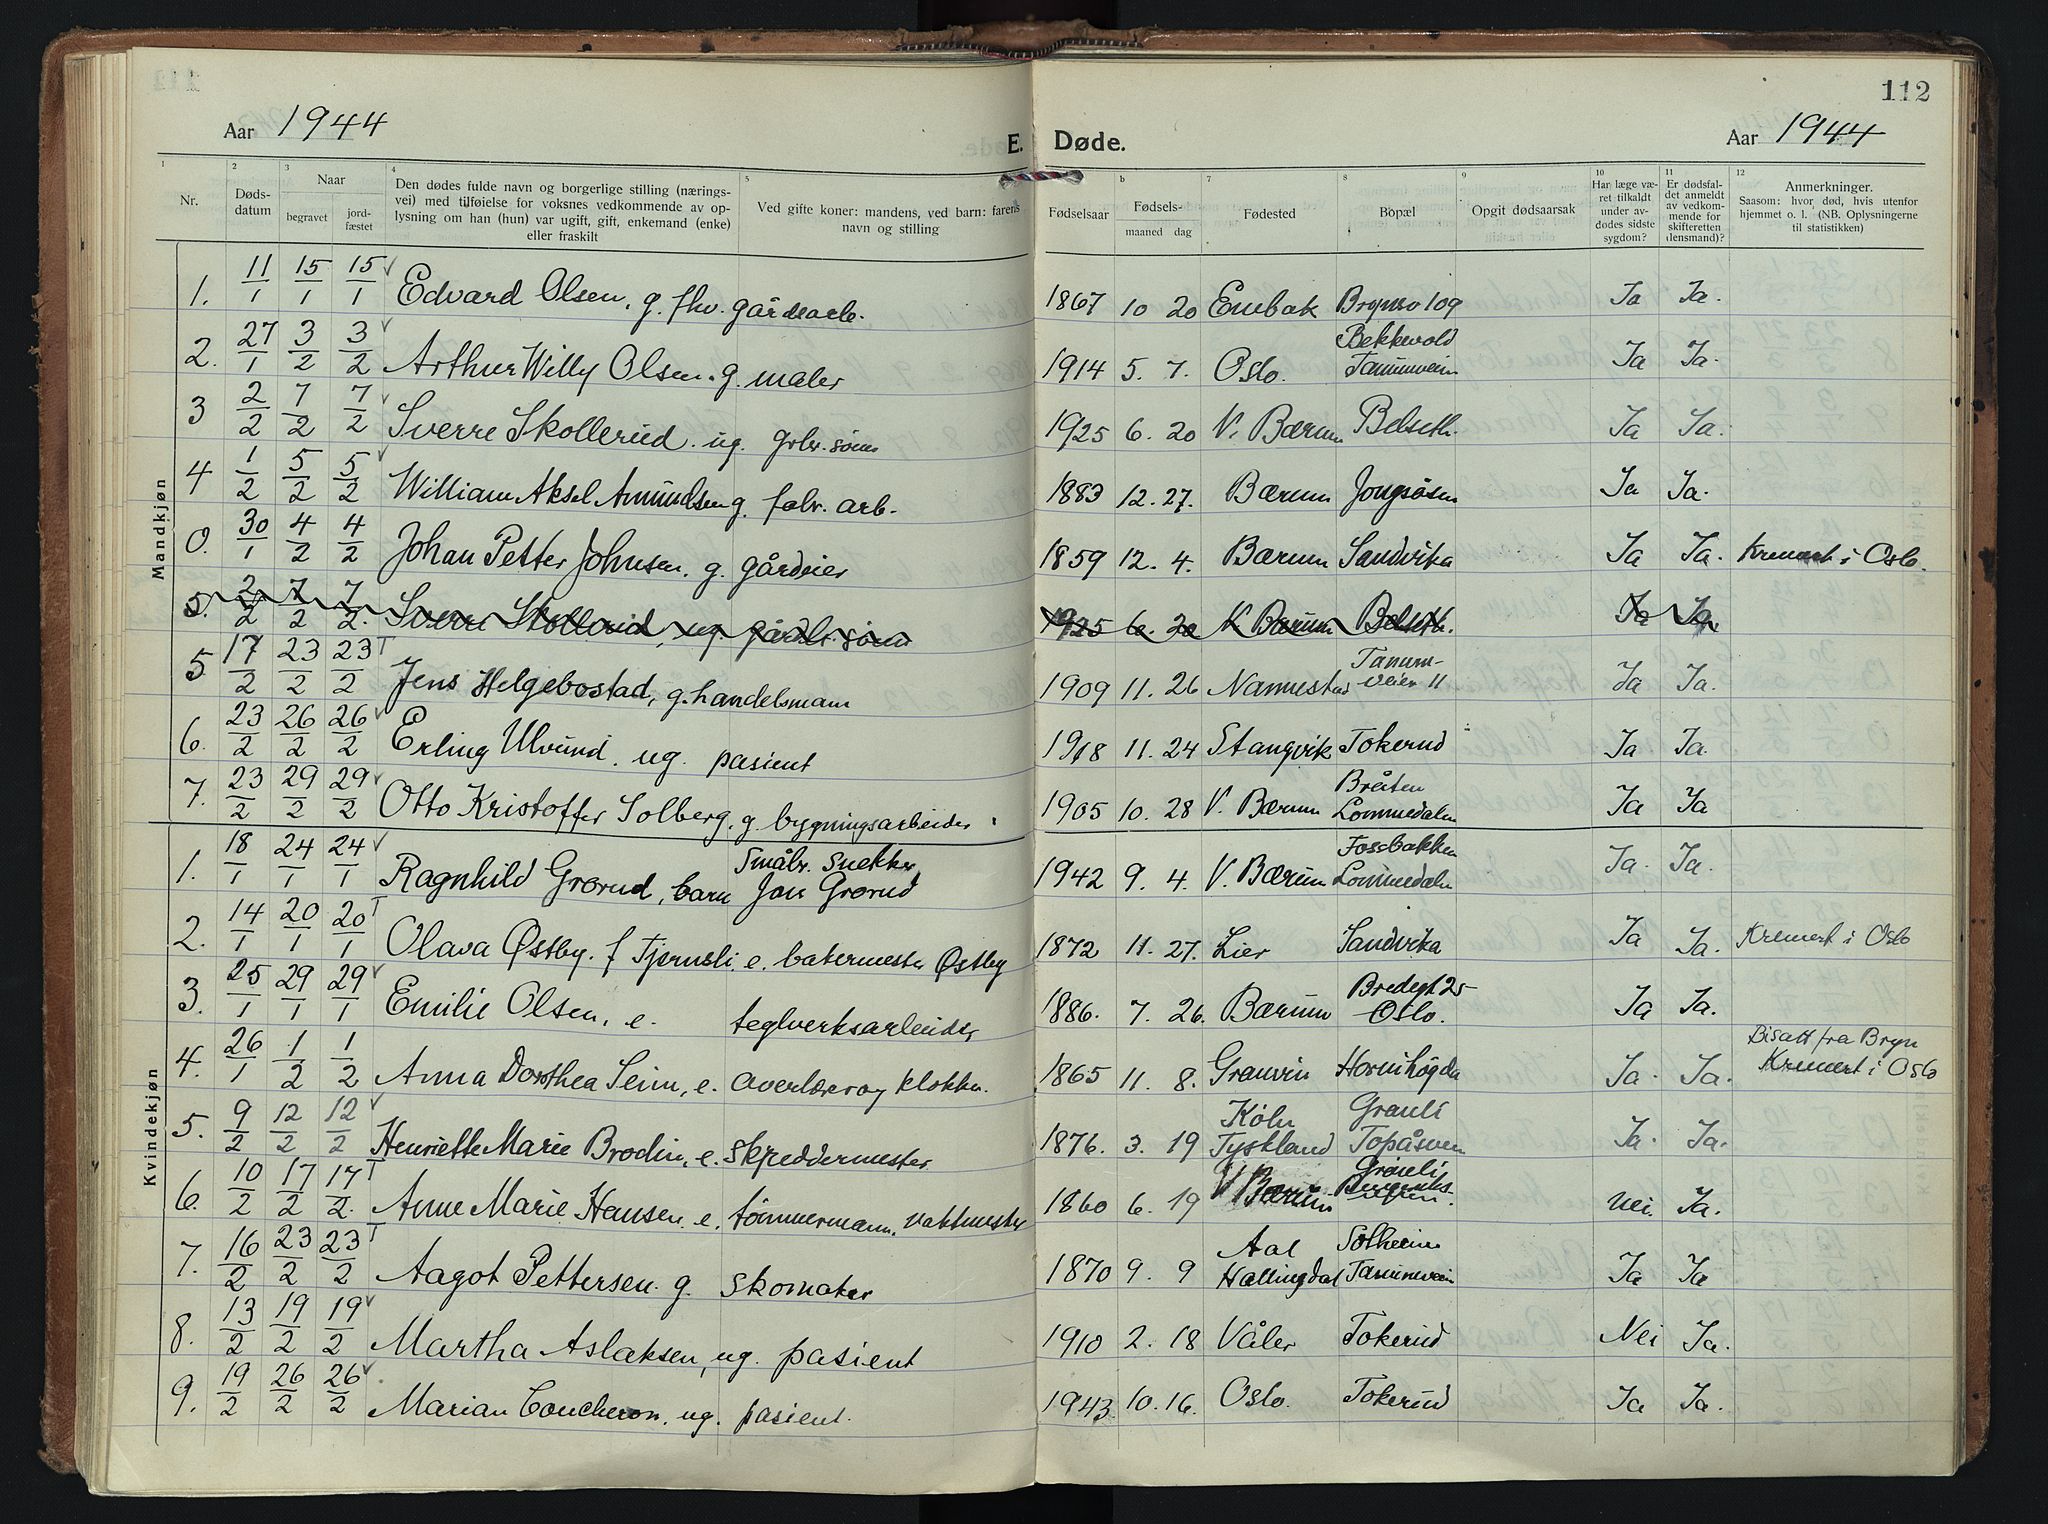 112
Aar 1944
E. Døde.
Aar 1944
1 2 3 4 5 b 7 8 9 10 11 12
Nr.
Døds-
datum
Naar
begravet
jord-
fæstet
Den dødes fulde navn og borgerlige stilling (nærings-
vei) med tilføielse for voksnes vedkommende av op-
lysning om han (hun) var ugift, gift, enkemand (enke)
eller fraskilt
Ved gifte koner: mandens, ved barn: farens
navn og stilling
Fødselsaar
Fødsels-
maaned dag
Fødested
Bopæl
Opgit dødsaarsak
Har læge væ-
ret tilkaldt
under av-
dødes sidste
sygdom?
Er dødsfal-
det anmeldt
av vedkom-
mende for
skifteretten
(lensmand)?
Anmerkninger.
Saasom: hvor død, hvis utenfor
hjemmet o. l. (NB. Oplysningerne
til statistikken)
Mandkjøn
1. 11/1 15/1 15/1 Edvard Olsen, g. fhv. gårdsarb. 1867 10 20 Enebak 109 Ja Ja.
2. 27/1 3/2 3/2 Arthur Willy Olsen. g. maler 1914 5. 7. Oslo. Bekkevold Tanumveien Ja Ja.
3 2/2 7/2 7/2 Sverre Skollerud. ug. grbr. sønn 1925 6. 20 V. Bærum Belseth. Ja Ja.
4 1/2 5/2 5/2 William Aksel Amundsen g. fabr. arb. 1883 12. 27. Bærum Jongsåsen Ja Ja.
0. 30/1 4/2 4/2 Johan Petter Johnsen. g. gårdeier 1859 12. 4. Bærum Sandvika Ja Ja. Kremert i Oslo.
5. 2/2 7/2 7/2. Sverre Skollerud, ug. gårdbr. sønn 1925 6. 20 V. Bærum Belseth. Ja Ja
5 17/2 23/2 23/2 T Jens Helgebostad, g. handelsmann 1909 11. 26 Nannestad Tanum-veien 11 Ja Ja.
6. 23/2 26/2 26/2 Erling Ulvund. ug. pasient 1918 11. 24 Stangvik Tokerud Ja Ja.
7. 23/2 29/2 29/2 Otto Kristoffer Solberg. g. bygningsarbeider 1905 10. 28 V. Bærum Bråten Lommedalen Ja Ja
Kvindekjøn
1. 18/1 24/1 24/1 Ragnhild Grorud, barn Småbr. snekker Jon Grorud 1942 9. 4. V. Bærum Fossbakken Lommedalen Ja. Ja.
2. 14/1 20/1 20/1 T Olava Østby. f Tjernsli. e. bakermester Østby 1872 11. 27. Lier Sandvika Ja Ja. Kremert i Oslo
3. 25/1 29/1 29/1 Emilie Olsen. e. teglverksarbeider 1886. 7. 26. Bærum Bredegt 25 Oslo. Ja Ja.
4. 26/1 1/2 1/2 Anna Dorothea Seim, e. overlærer og klokker. 1865 11. 8. Granvin Hornihøgda Ja. Ja. Bisatt fra Bryn Kremert i Oslo
5. 9/2 12/2 12/2 Henriette Marie Brodin, e. skreddermester 1876. 3. 19 Köln Tyskland Granli Topåsven Ja. Ja.
6. 10/2 17/2 17/2. T Anne Marie Hansen. e. tømmermann. vaktmester 1860 6. 19 V Bærum Granli Nei. Ja.
7. 16/2 23/2 23/2 T Aagot Pettersen. g. skomaker 1870 9. 9 Aal Hallingdal Solheim Tanumveien Ja Ja
8. 13/2 19/2 19/2 Martha Aslaksen, ug. pasient 1910 2. 18 Våler Tokerud Nei Ja.
9. 19/2 26/2 26/2 Marian Coucheron, ug. pasient. 1943 10. 16. Oslo. Tokerud Ja Ja.